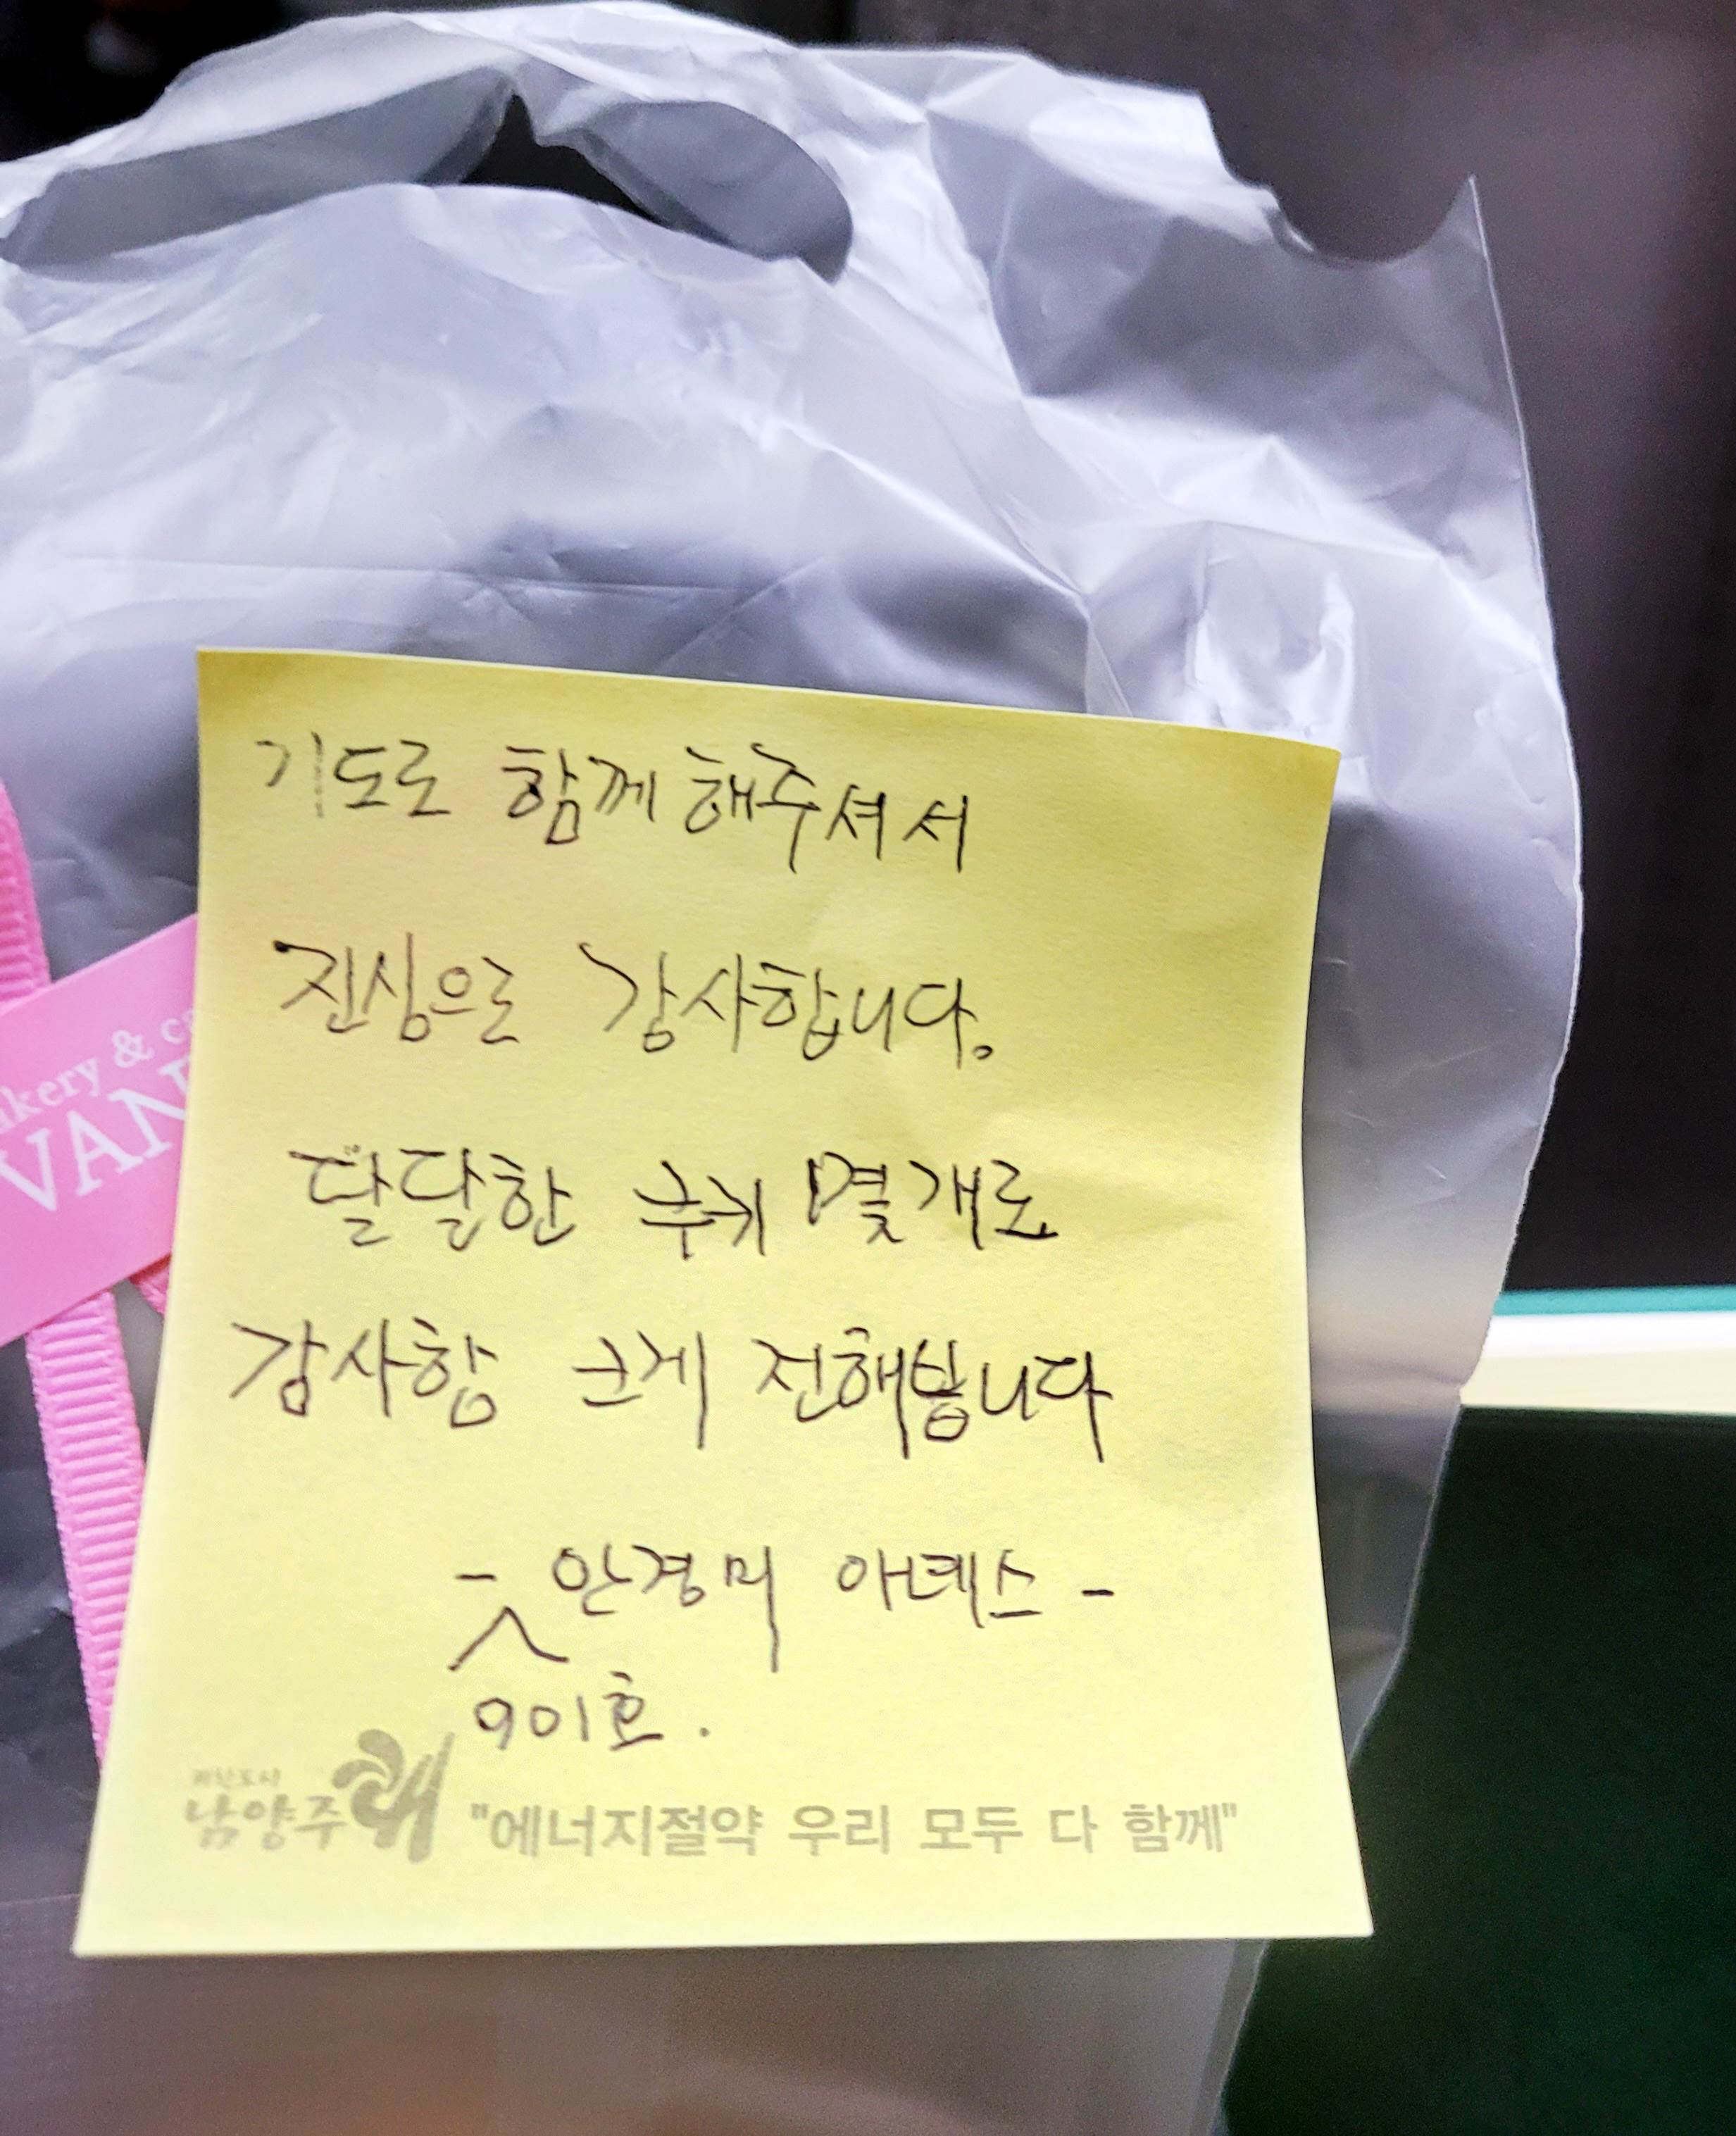 기도로 함께 해주셔서
진심으로 감사합니다.
달달한 쿠키 몇개로
감사함 크게 전해봅니다
- 안경미 아녜스 -
901호.
남양주
"에너지절약 우리 모두 다 함께"
bakery & ca
VAN